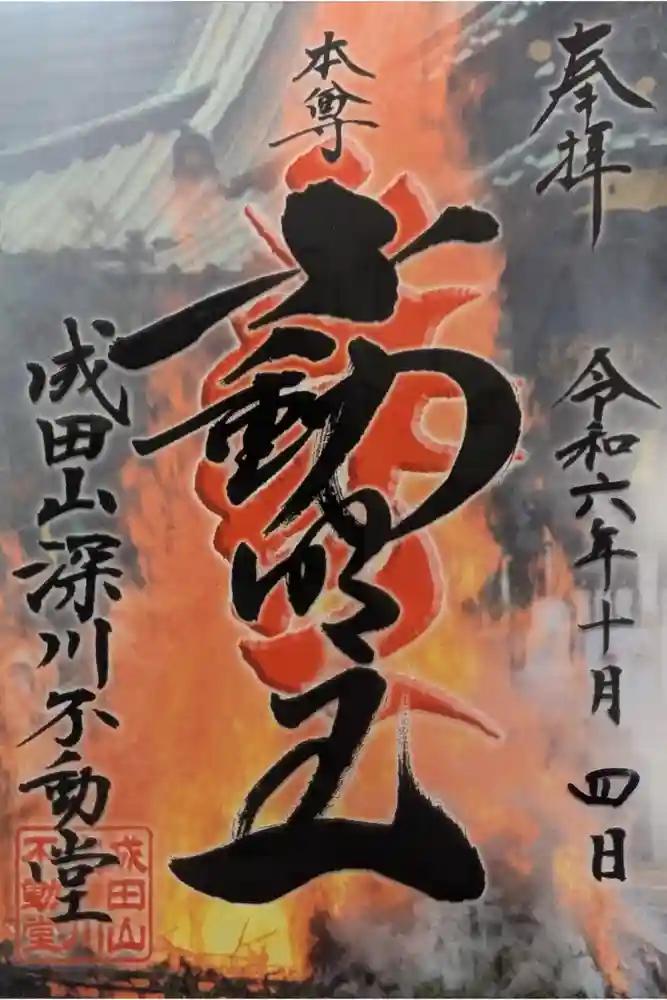 奉拝
令和六年十月四日
本尊
不動明王
成田山深川不動堂
成田山
深川
不動堂